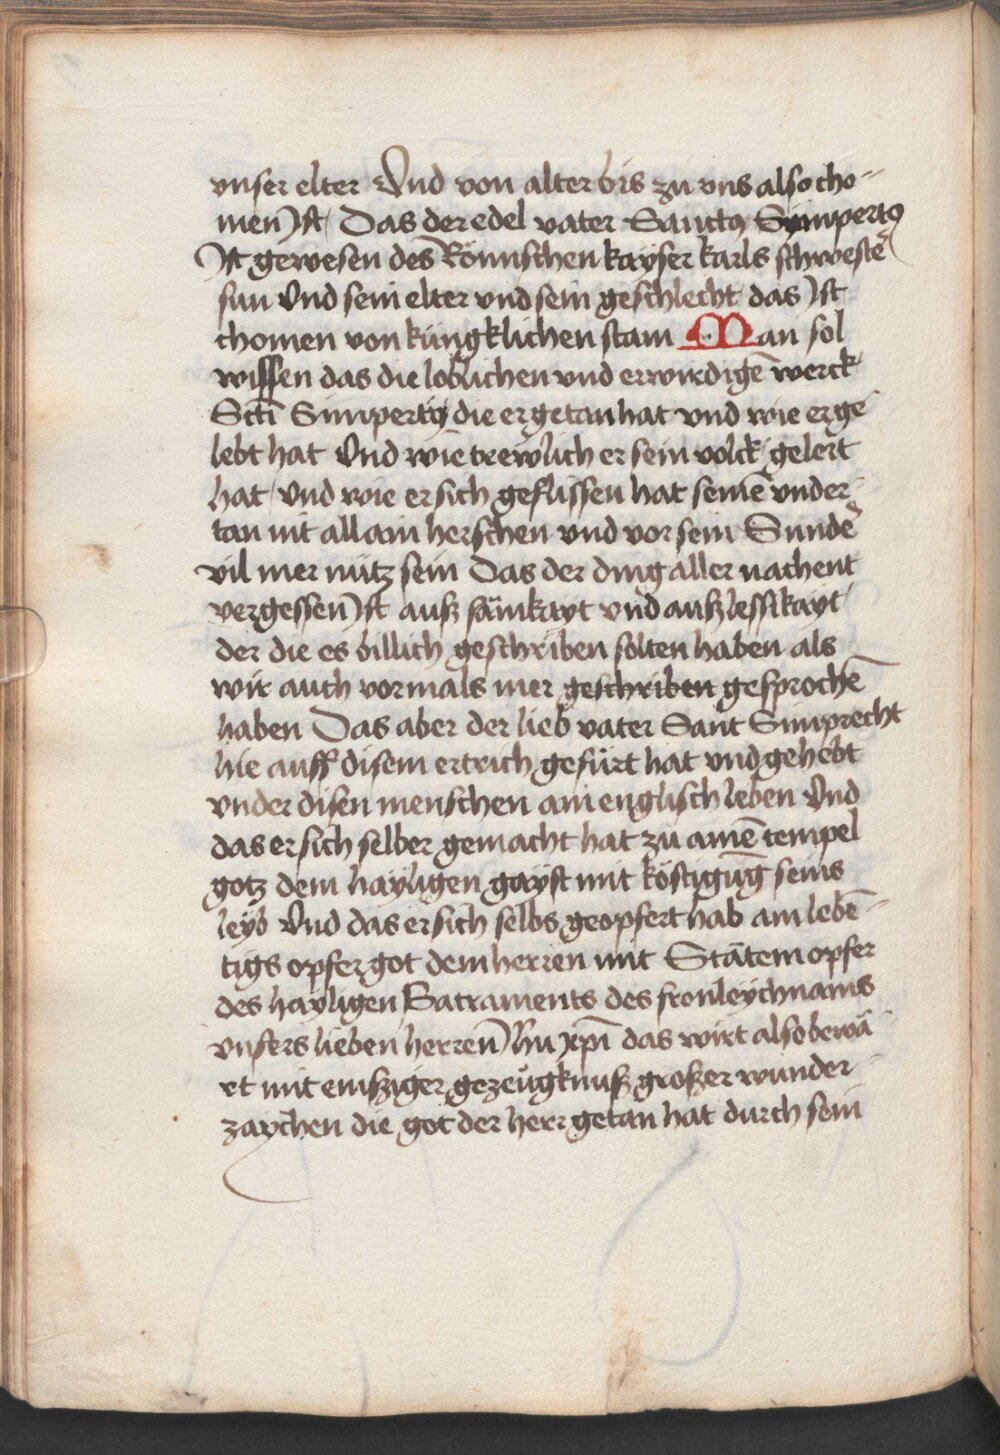 vnser elter Vnd von alter bis zu vns also cho-
men Ist Das der edel vater Sanctꝰ Simpertꝰ
Ist gewesen des Römischen kayser karls schwest̾
sun Vnd sein elter vnd sein geschlecht das Ist
chomen von küngklichen stam Man sol
wissen das die loblichen vnd erwirdigē werck
Scti̅ Simperty die er getan hat vnd wie er ge
lebt hat Vnd wie trewlich er sein volck gelert
hat vnd wie er sich geflissen hat seinē vnder
tan nit allain herschen vnd vor sein Sunde᷑
vil mer nütz sein Das der ding aller nachent
vergessen Ist ausz sämkayt vnd auszlessikayt
der die es billich geschriben solten haben als
wir auch vormals mer geschriben gesprochē
haben Das aber der lieb vater Sant Simprecht
hie auff disem ertrich gefürt hat vnd gehebt
vnder disen menschen ain englisch leben Vnd
das er sich selber gemacht hat zu ainē tempel
gotz dem hayligen gayst mit köstigūg seins
leyb Vnd das er sich selbs geopfert hab ain lebē-
tigs opfer got dem herren mit Stätem opfer
des hayligen Sacraments des fronleychnams
vnsers lieben herren Ihu xpi̅ das wirt also bewä
rt mit emsziger gezeügknusz groszer wunder
zaychen die got der herr getan hat durch sein